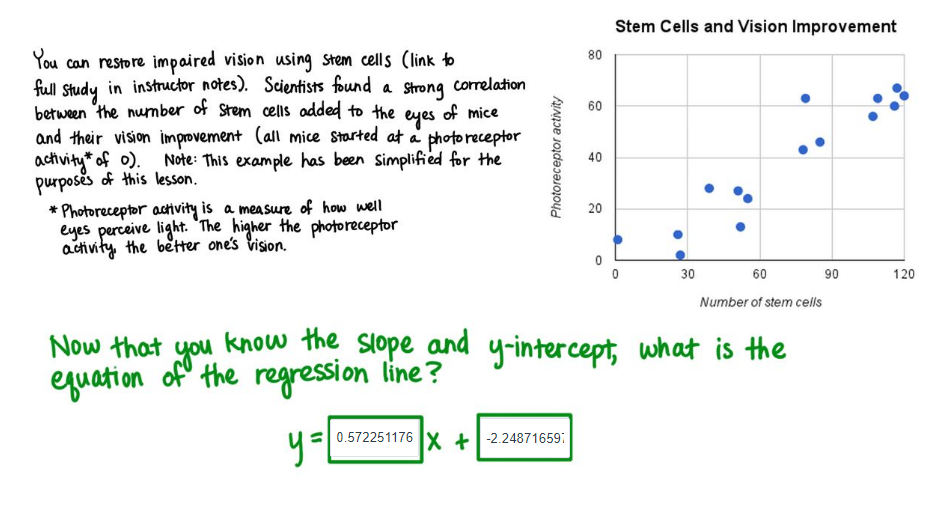 Stem Cells and Vision Improvement
You can restore impaired vision using stem cells (link to
full study in instructor notes). Scientists found a strong correlation
between the number of stem cells added to the eyes of mice
and their vision improvement (all mice started at a photoreceptor
activity* of 0). Note: This example has been simplified for the
purposes of this lesson.
* Photoreceptor activity is a measure of how well
eyes perceive light. The higher the photoreceptor
activity, the better one's vision.
Photoreceptor activity
80
60
40
20
0
0 30 60 90 120
Number of stem cells
Now that you know the slope and y-intercept, what is the
equation of the regression line?
y = 0.572251176 x + -2.248716597